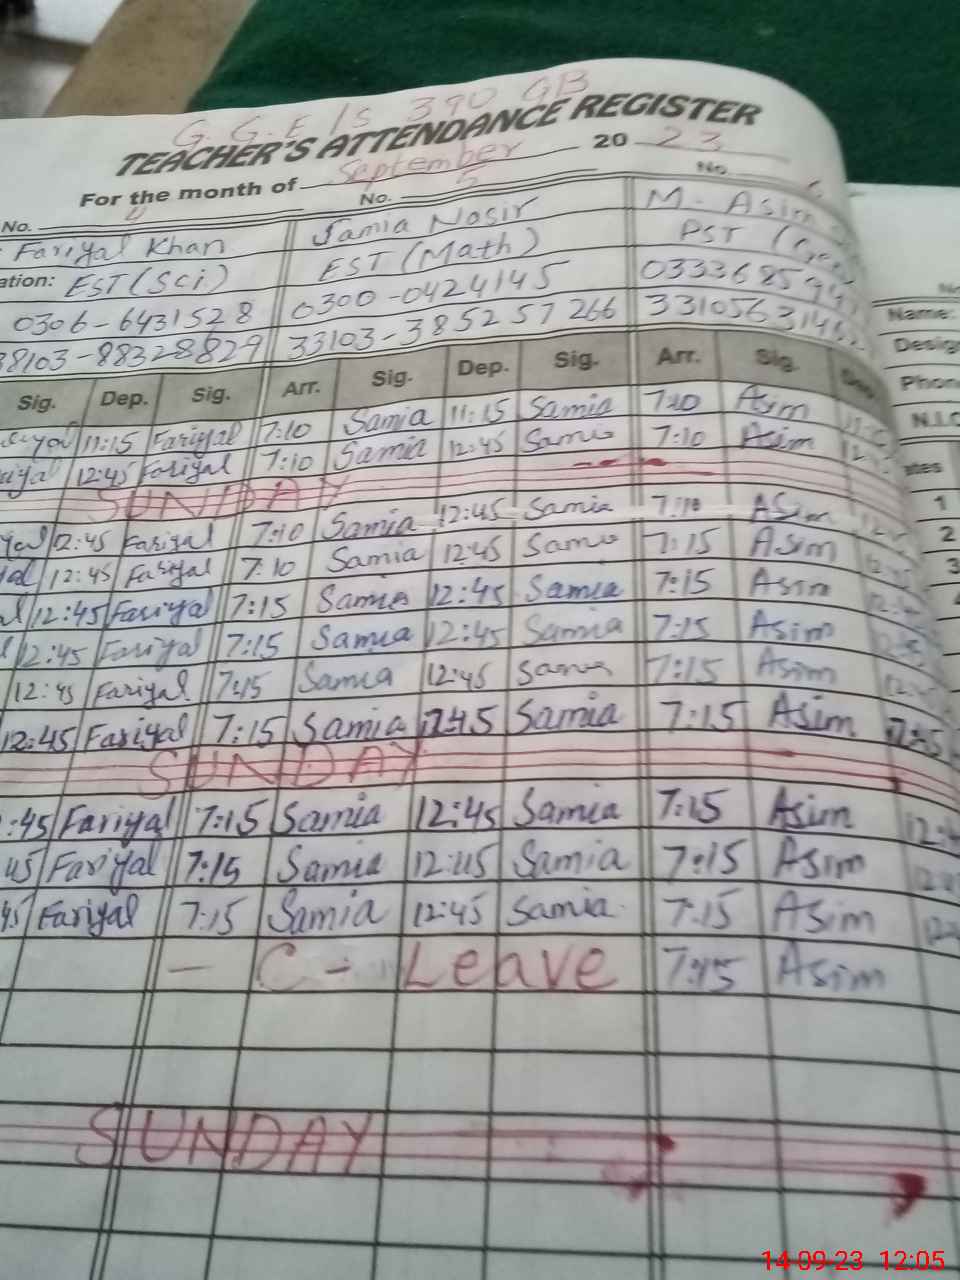 G. G. E / S 390 GB
TEACHER'S ATTENDANCE REGISTER
For the month of September 20 23
No. 4 No. 5 No.
Fariyal Khan Samia Nasir M. Asim
ation: EST (Sci) EST (Math) PST
0306-6431528 0300-0424145
38103-88328829 33103-385257266
Name:
Desig
Phon
N.I.C
Sig. Dep. Sig. Arr. Sig. Dep. Sig. Arr. Sig. Dep.
11:15 Fariyal 7:10 Samia 11:15 Samia 7:10 Asim
12:45 Fariyal 7:10 Samia 12:45 Samia 7:10 Asim
ates
SUNDAY
1
12:45 Fariyal 7:10 Samia 12:45 Samia 7:10 Asim
2
12:45 Fariyal 7:10 Samia 12:45 Samia 7:15 Asim
3
12:45 Fariyal 7:15 Samia 12:45 Samia 7:15 Asim
12:45 Fariyal 7:15 Samia 12:45 Samia 7:15 Asim
12:45 Fariyal 7:15 Samia 12:45 Samia 7:15 Asim
12:45 Fariyal 7:15 Samia 12:45 Samia 7:15 Asim 12:45
SUNDAY
:45 Fariyal 7:15 Samia 12:45 Samia 7:15 Asim
45 Fariyal 7:15 Samia 12:45 Samia 7:15 Asim
45 Fariyal 7:15 Samia 12:45 Samia 7:15 Asim
- C - Leave 7:15 Asim
SUNDAY
14-09-23 12:05